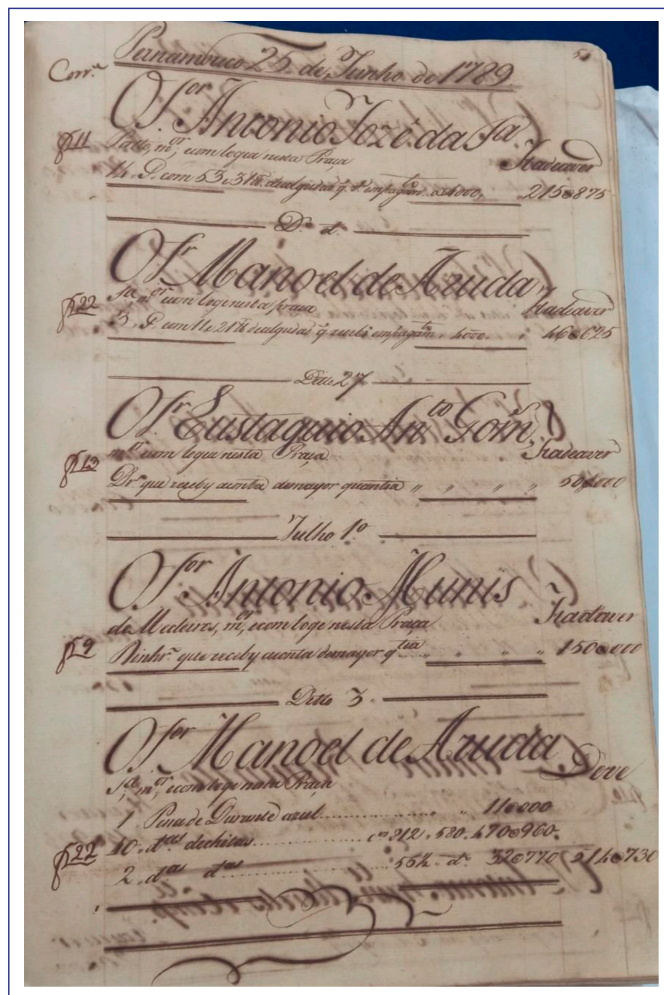 50
Corr.e Pernambuco 25 de Junho de 1789
O S.or Antonio Jozé da S.a
f 11 m.or e com logea nesta Praça Hadeaver
14 P. com 53 a 4000 215@875
D.o d.o
O S.r Manoel de Aruda
f 22 S.a m.or e com loge nesta praça Hadeaver
3 P. com 11 4000 46@625
Ditto 27
O S.r Eustaquio An.to Gom.
f 13 m.or e com logea nesta Praça Hadeaver
Dr.o que receby aconta demayor quantia " " " " 50@000
Julho 1.o
O S.or Antonio Munis
de Medeiros, m.or, e com loge nesta Praça Hadaver
f 9 Dinhr.o que receby aconta demayor q.tia " " " 150@000
Ditto 3
O S.or Manoel de Aruda Deve
S.a, m.or e com loge nesta Praça
1 Pesa de Durante azul 11@000
f 22 10 d.as dechitas c.os 212, 580. 470@960.
2 d.as d.as 55½ d.os 32@770 514@730